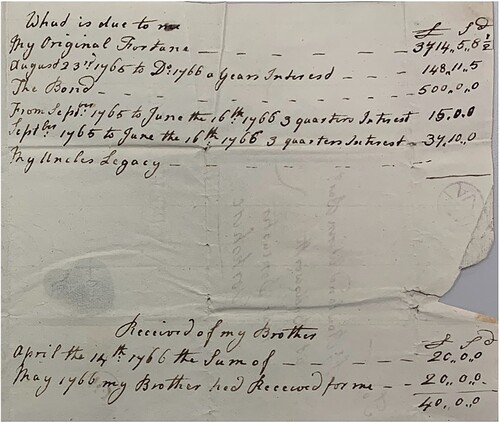 What is due to me
£ S d
My Original Fortune — — — — — 3714,,5,,8 1/2
August 23rd, 1765 to Do. 1766 a Years Interest — — 148,,11,,5
The Bond — — — — — — — 500,,0,,0
From Septbr 1765 to June the 16th 1766 3 quarters Interest 15,,0,,0
Septbr 1765 to June the 16th 1766 3 quarters Interest — 37,,10,,0
My Uncles Legacy — — — — — —
Received of my Brother
£ S d
April the 14th 1766 the Sum of — — — — — 20,,0,,0
May 1766 my Brother had Received for me — — 20,,0,,0
40,,0,,0